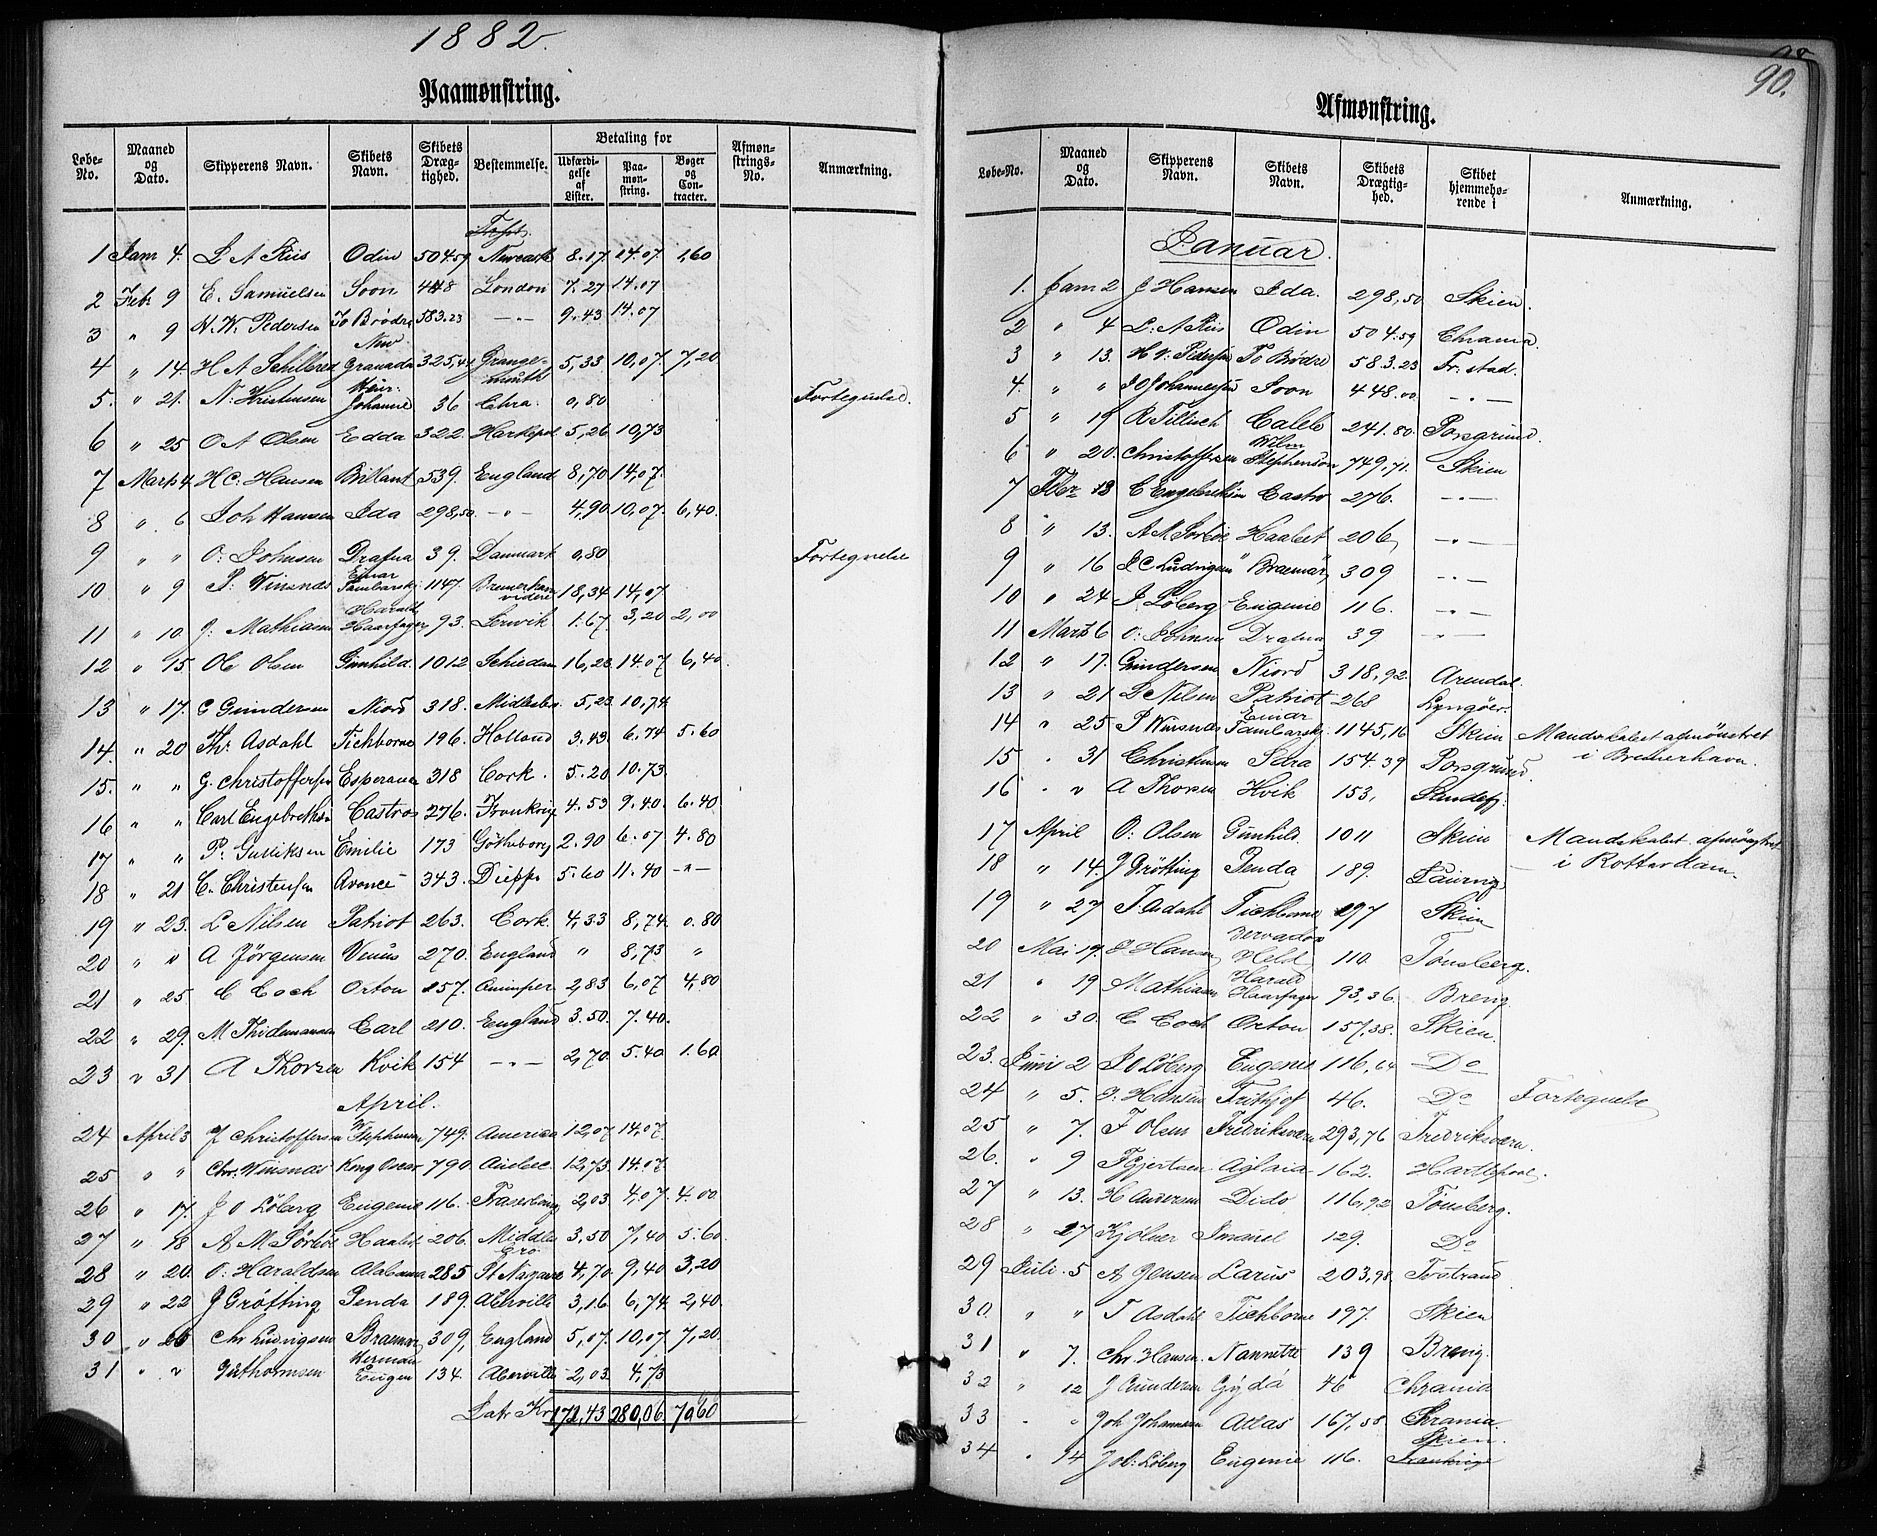 1882.
Paamønstring.
Løbe-No. Maaned og Dato. Skipperens Navn. Skibets Navn. Skibets Drægtighed. Bestemmelse. Betaling for Udfærdigelse af Lister. Paamønstring. Bøger og Contracter. Afmønstrings-No. Anmærkning.
1 Jam 4. L A Riis Odin 504.59 8.17. 14.07. 1,60
2 Febr 9 E. Samuelsen Soon 448 London 7.27 14.07
3 " 9 H. W. Pedersen To Brødre 583.23 —"— 9.43 14.07
4 " 14. H A New Granada 325, Grangemouth 5,33 10,07. 7,20
5. " 21. N: Kristensen Johanne 36 Chra. 0,80 Fortegnelse.
6 " 25 O A Olsen Edda 322. 5,26 10,73
7 Marts 4. H C. Hansen Brillant 539. England 8,70 14,07.
8 " 6 Joh Hansen Ida 298,50 —"— 4,90 10,07. 6,40.
9 " " O: Johnsen Drafna 39. Danmark 0,80 Fortegnelse
10 " 9 P. Winsnes Einar Tambarskj. 1147. Bremerhav videre 18,34 14,07
11 " 10. J: Mathiasen Harald Haarfager 93. 1.67. 3,20 2,00
12 " 15. Ole Olsen Gunhild. 1012 Schiedam 16,23 14.07. 6,40.
13 " 17. G Gundersen Niord 318. 5,23 10,74
14. " 20 Th: Asdahl Tichborne 196. Holland 3.43. 6.74 5.60
15. " " G. Christoffersen Esperance 318 Cork. 5.20 10.73.
16 " " Carl Engebretsen Castro 276. Frankrig 4.53 9.40. 6.40
17 " " P: Gulliksen Emilie 173 Gøtheborg 2.90 6.07 4.80
18 " 21 C. Christensen Avance 343. Dieppe 5.60 11.40 —"—
19 " 23. L Nilsen Patriot 263. Cork. 4,33 8,74. 0.80
20 " " A Jørgensen Venus 270. England " 8,73 "
21 " 25. C Coch Orton 157. 2,83 6,07 4,80
22 " 29. M Thidemansen Carl 210. England 3.50. 7.40.
23 " 31 A Thorsen Kvik 154 —"— 2,70. 5.40 1.60
April.
24 April 3 J Christoffersen W Stephenson 749. America 12,07 14,07.
25 " " Chr. Winsnes Kong Oscar 790 12,73. 14.07.
26 " 17. J O Løberg Eugenie 116. 2,03. 4,07. 4.00
27 " 18 A M Sørbøe Haabet 206. Middlesbro 3,50 7,40 5.60
28 " 20. O: Haraldsen Alabama 285 St Nazaire 4,70. 9,40 3,20
29 " 22 J Grøtting Penda 189. Aberville 3,16. 6,74. 2,40.
30 " 26 Chr Ludvigsen Braemar 309, England 5,07. 10,07. 7,20.
31 " " Guthormsen Herman Eugen 134. Aberville 2,03. 4,73
Latr Kr 172,43 280,06 79,60
90.
Afmønstring.
Løbe-No. Maaned og Dato. Skipperens Navn. Skibets Navn. Skibets Drægtighed. Skibet hjemmehørende i Anmærkning.
Januar.
1. Jam 2 J Hansen Ida. 298,50 Skien.
2 " 4 L: A Riis Odin 504.59 Chrania.
3 " 13. H W: Pedersen To Brødre 583.23 Fr:stad.
4. " " J O Johannesen Soon 448.00 —"—
5 " 19 R Tillisch Caleb 241.80. Porsgrund.
6 " 20. Christoffersen Wilm Stephenson 749,71. Skien
7 Febr 13 C Engebretsen Castro 276. —"—
8 " 13. A M Sørbøe Haabet 206, —"—
9 " 16 J C Ludvigsen "Braemar" 309 —"—
10 " 24 J Løberg Eugenie 116. —"—
11 Marts 6 O: Johnsen Drafna 39 —"—
12 " 17. Gundersen Niord 318,92. Arendal.
13 " 21 L Nilsen Patriot 268 Lyngøer.
14 " 25 P Winsnes Einar Tambarskj. 1145,16 Skien Mandskabet afmønstret i Bremerhavn.
15 . 31 Christensen 154.39 Porsgrund.
16 . " A Thorsen Kvik 153,
17 April O: Olsen Gunhild. 1011 Skien Mandskabet afmønstret i Rotterdam.
18 " 14. J Grøtting Penda 189. Laurvig
19 " 27 T. Asdahl Tichborne 197 Skien
20 Mai 19. Hansen Held 110 Tønsberg.
21 " 19 Mathiasen Harald Haarfager 93,36. Brevig
22 " 30. C Coch Orton 157,38. Skien.
23. Juni 2 J O Løberg Eugenie 116,64 Do
24 " 5. J. Hansen Frithjof 46. Do Fortegnelse
25 " 7. F Olsen Fredriksværn 293,76 Fredriksværn.
26. " 9 F Gjertsen Aglaia 162. Hartlpool.
27 " 13. H Andersen Dido 116,92 Tønsberg.
28 " 27 Kjølner 129. Do
29 Juli . 5 A Jensen Larus 203,98 Tvestrand
30. " " T Asdahl Tichborne 197. Skien
31 " 7. Chr. Hansen Nannette 139 Brevig.
32 " 12 J Gundersen Gyda 46 Chrania
33 . " Joh Johannesen Atlas 167,58
34 . 14 Joh: Løberg Eugenie 116. Skien. Frankrige